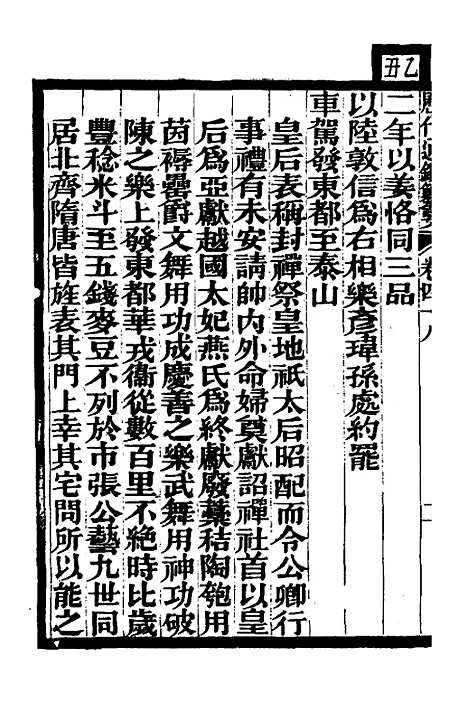 乙丑
歷代通鑑纂要 卷四十八
二年以姜恪同三品
以陸敦信爲右相樂彥瑋孫處約罷
車駕發東都至泰山
皇后表稱封禪祭皇地祇太后昭配而令公卿行
事禮有未安請帥內外命婦奠獻詔禪社首以皇
后爲亞獻越國太妃燕氏爲終獻廢藁秸陶匏用
茵褥罍爵文舞用功成慶善之樂武舞用神功破
陳之樂上發東都華戎衞從數百里不絕時比歲
豐稔米斗至五錢麥豆不列於市張公藝九世同
居北齊隋唐皆旌表其門上幸其宅問所以能之